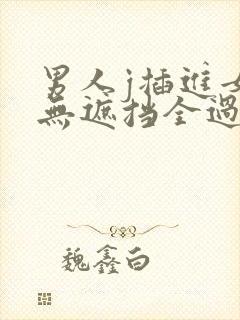 男人j插进女
無遮挡全過
魏鑫白